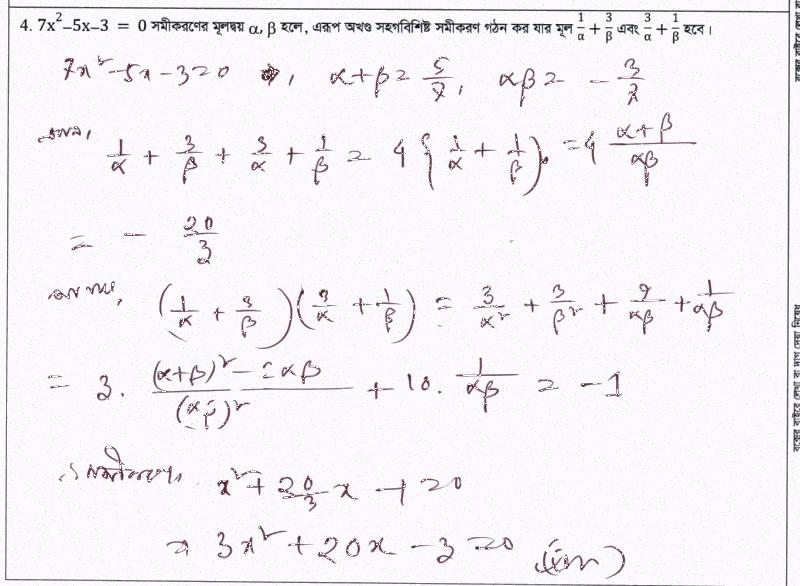 4. 7x²–5x–3 = 0 সমীকরণের মূলদ্বয় α, β হলে, এরূপ অখণ্ড সহগবিশিষ্ট সমীকরণ গঠন কর যার মূল 1/α + 3/β এবং 3/α + 1/β হবে।
7x² – 5x – 3 = 0 , α+β = 5/7, αβ = – 3/7
1/α + 3/β + 3/α + 1/β = 4 {1/α + 1/β} = 4 (α+β)/(αβ)
= – 20/3
(1/α + 3/β)(3/α + 1/β) = 3/α² + 3/β² + 9/αβ + 1/αβ
= 3. ((α+β)² – 2αβ)/(αβ)² + 10. 1/αβ = –1
∴ সমীকরণ, x² + 20/3 x – 1 = 0
⇒ 3x² + 20x – 3 = 0 (Ans)